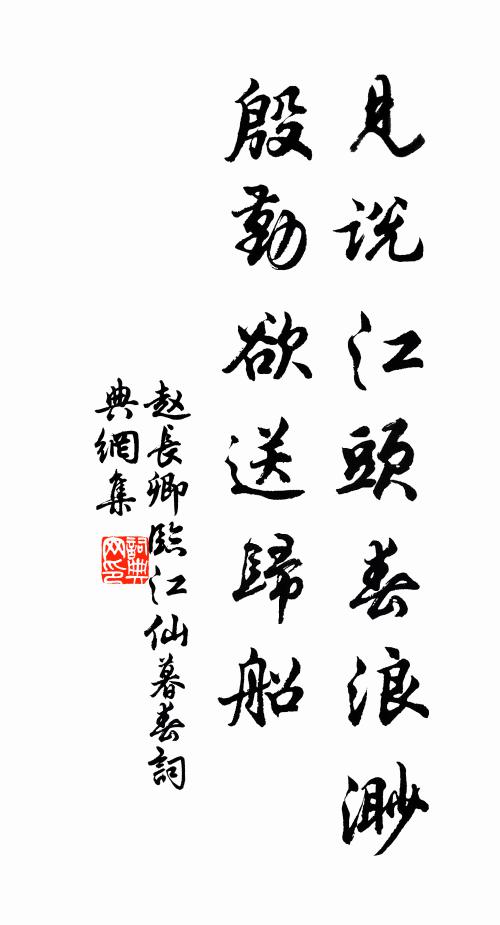 見説江頭春浪渺
殷勤欲送歸船
赵長卿臨江仙暮春詞
典網集
詞典網印